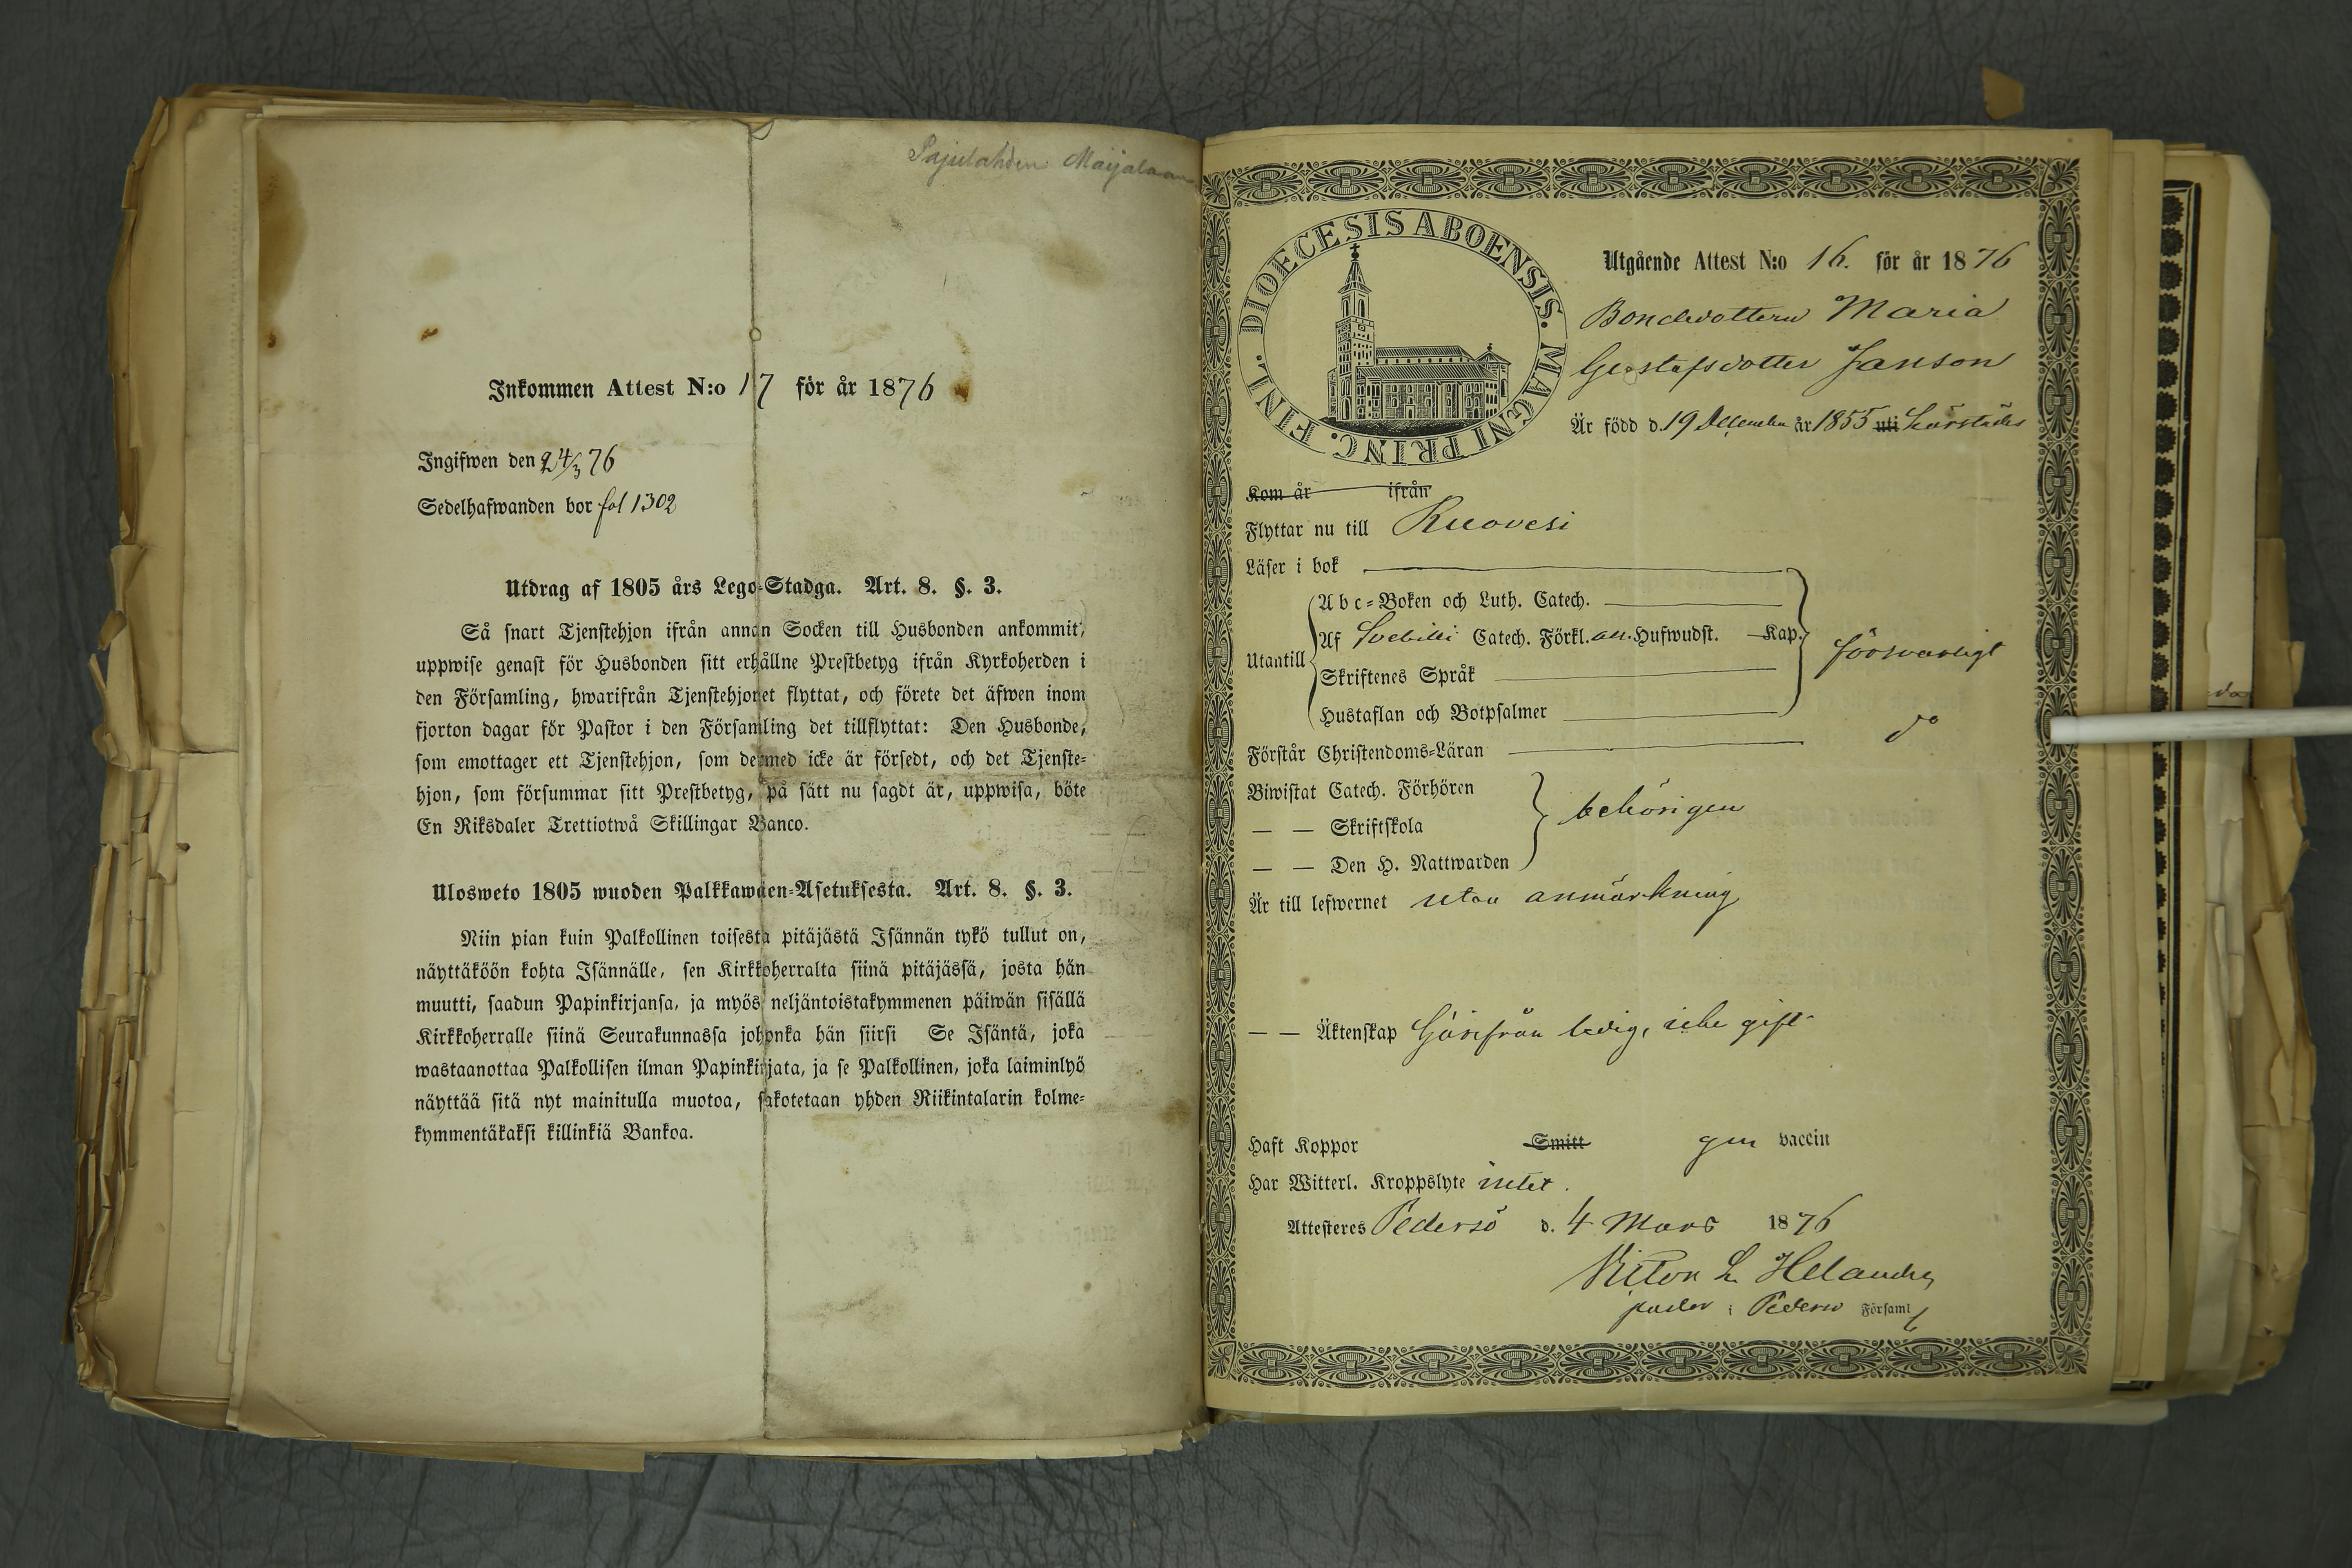 Pajulahden Maijalaan
Inkommen Attest N:o 17 för år 1876
Ingifwen den 24/3 76
Sedelhafwanden bor fol 1302
Utdrag af 1805 års Lego-Stadga. Art. 8. §. 3.
Så snart Tjenstehjon ifrån annan Socken till Husbonden ankommit,
uppwise genast för Husbonden sitt erhållne Prestbetyg ifrån Kyrkoherden i
den Församling, hwarifrån Tjenstehjonet flyttat, och förete det äfwen inom
fjorton dagar för Pastor i den Församling det tillflyttat: Den Husbonde,
som emottager ett Tjenstehjon, som dermed icke är försedt, och det Tjenste-
hjon, som försummar sitt Prestbetyg, på sätt nu sagdt är, uppwisa, böte
En Riksdaler Trettiotwå Skillingar Banco.
Ulosweto 1805 wuoden Palkkawäen-Asetuksesta. Art. 8. §. 3.
Niin pian kuin Palkollinen toisesta pitäjästä Isännän tykö tullut on,
näyttäköön kohta Isännälle, sen Kirkkoherralta siinä pitäjässä, josta hän
muutti, saadun Papinkirjansa, ja myös neljäntoistakymmenen päiwän sisällä
Kirkkoherralle siinä Seurakunnassa johonka hän siirsi Se Isäntä, joka
wastaanottaa Palkollisen ilman Papinkirjata, ja se Palkollinen, joka laiminlyö
näyttää sitä nyt mainitulla muotoa, sakotetaan yhden Riikintalarin kolme-
kymmentäkaksi killinkiä Bankoa.
DIOECESIS ABOENSIS. MAGNI PRINC. FINL.
Utgående Attest N:o 16. för år 1876
Bondedottern Maria
Gustafsdotter Janson
Är född d. 19 December år 1855 uti
Kom år ifrån
Flyttar nu till Ruovesi
Läser i bok
Utantill
Abc-Boken och Luth. Catech.
Af Svebilii Catech. Förkl. all. Hufwudst. Kap.
Skriftenes Språk
Hustaflan och Botpsalmer
försvarligt
Förstår Christendoms-Läran do
Biwistat Catech. Förhören
— — Skriftskola
— — Den H. Nattwarden
behörigen
Är till lefwernet utan anmärkning
— — Äktenskap Härifrån ledig, icke gift
Haft Koppor Smitt gm vaccin
Har Witterl. Kroppslyte intet.
Attesteres Pedersö d. 4 Mars 1876
Viktor L Helander
pastor i Pedersö Församl